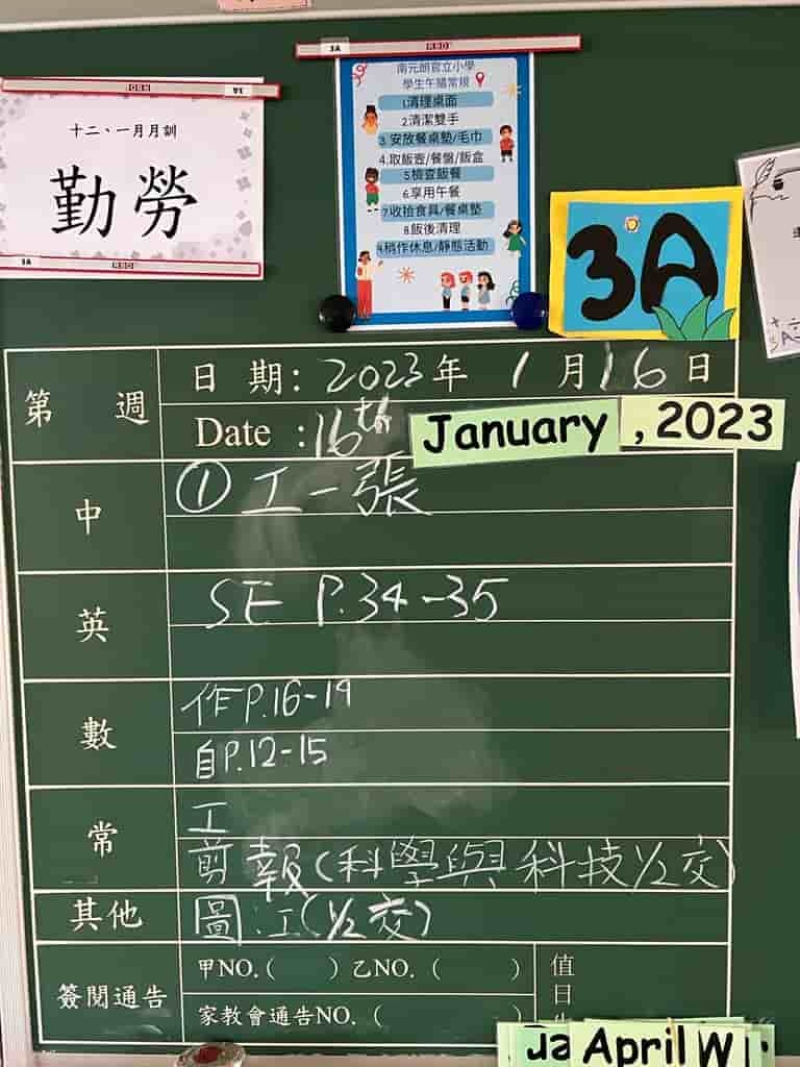 3A
十二、一月月訓
勤勞
3A
3A
南元朗官立小學
學生午膳常規
1.清理桌面
2.清潔雙手
3.安放餐桌墊/毛巾
4.取飯壺/餐盤/飯盒
5.檢查飯餐
6.享用午餐
7.收拾食具/餐桌墊
8.飯後清理
9.稍作休息/靜態活動
3A
第 週
日 期: 2023年 1月16日
Date :16th January ,2023
中
① 工一張
英
SE P.34-35
數
作P.16-19
自P.12-15
常
工
剪報(科學與科技1/2交)
其他
圖:工(1/2交)
簽閱通告
甲NO.( ) 乙NO.( )
家教會通告NO.(
值
日
Ja
April W